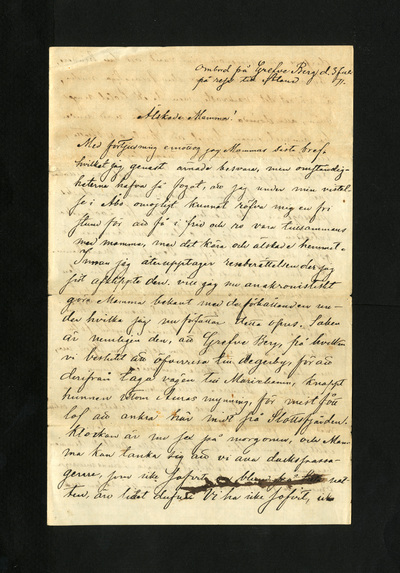 ombord på Grefve Berg d. 3 Juli
på resa till Åland 71.
Älskade Mamma!
Med förtjusning emottog jag Mammas sista bref,
hvilket jag genast ärnade besvara, men omständig-
heterna hafva så fogat, att jag under min vistel-
se i Åbo omöjligt kunnat röfva mig en fri
stund för att få i fred och ro vara tillsammans
med mamma, med det kära och älskade hemmet.
Innan jag återupptager reseberättelsen der jag
sist afklippte den, vill jag nu anakronistiskt
göra Mamma bekant med de förhållanden un-
der hvilka jag nu författar detta opus. Saken
är nemligen den, att Grefve Berg, på hvilken
vi beslutit att öfverresa till Degerby, för att
derifrån taga vägen till Mariehamn, knappt
hunnen utom Auras mynning, för miste fött
lof att ankra här midt frå Slottsfjärden.
Klockan är nu sex på morgonen, och Mam-
ma kan tänka sig att vi äro däckspassa-
gerare, som icke sofvit nat-
ten, är lidet Vi ha icke sofvit, ut